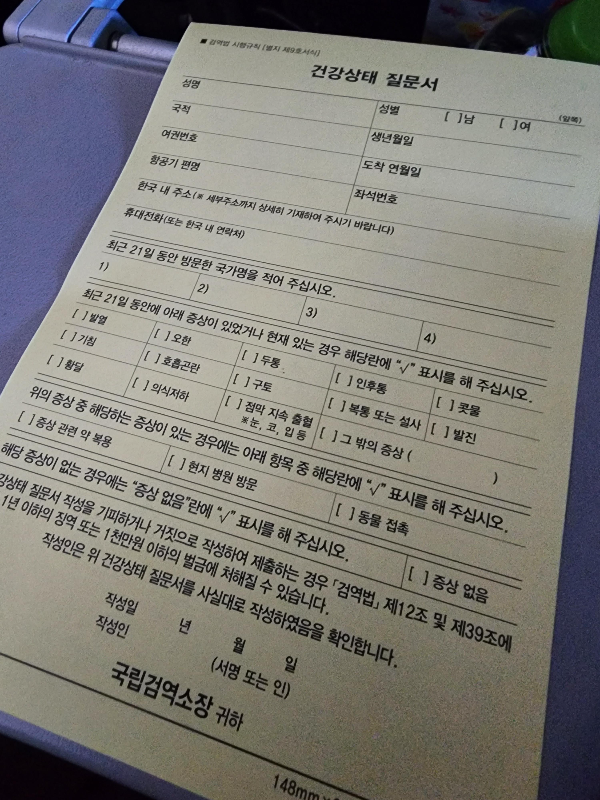 ■ 검역법 시행규칙 [별지 제9호서식]
건강상태 질문서
(앞쪽)
성명 성별 [ ]남 [ ]여
국적 생년월일
여권번호 도착 연월일
항공기 편명 좌석번호
한국 내 주소(※ 세부주소까지 상세히 기재하여 주시기 바랍니다)
휴대전화(또는 한국 내 연락처)
최근 21일 동안 방문한 국가명을 적어 주십시오.
1) 2) 3) 4)
최근 21일 동안에 아래 증상이 있었거나 현재 있는 경우 해당란에 “√” 표시를 해 주십시오.
[ ] 발열 [ ] 오한 [ ] 두통 [ ] 인후통 [ ] 콧물
[ ] 기침 [ ] 호흡곤란 [ ] 구토 [ ] 복통 또는 설사 [ ] 발진
[ ] 황달 [ ] 의식저하 [ ] 점막 지속 출혈 [ ] 그 밖의 증상 ( )
※눈, 코, 입 등
위의 증상 중 해당하는 증상이 있는 경우에는 아래 항목 중 해당란에 “√” 표시를 해 주십시오.
[ ] 증상 관련 약 복용 [ ] 현지 병원 방문 [ ] 동물 접촉
해당 증상이 없는 경우에는 “증상 없음”란에 “√” 표시를 해 주십시오. [ ] 증상 없음
강상태 질문서 작성을 기피하거나 거짓으로 작성하여 제출하는 경우 「검역법」 제12조 및 제39조에
1년 이하의 징역 또는 1천만원 이하의 벌금에 처해질 수 있습니다.
작성인은 위 건강상태 질문서를 사실대로 작성하였음을 확인합니다.
작성일 년 월 일
작성인 (서명 또는 인)
국립검역소장 귀하
148mm×